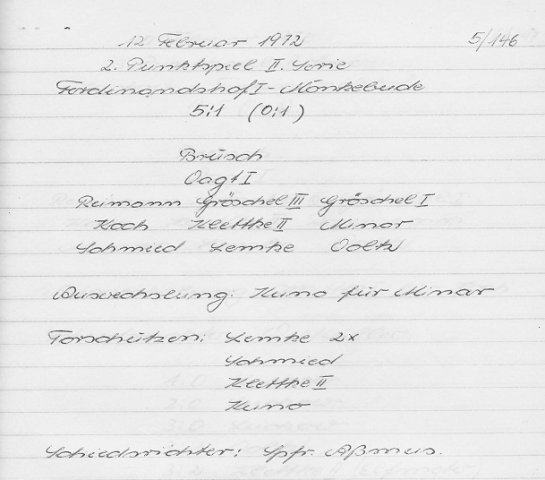 12 Februar 1972 5/146
2. Punktspiel II. Serie
Ferdinandshof I - Mönkebude
5:1 (0:1)
Brüsch
Vagt I
Reimann Gröschel III Gröschel I
Koch Klettke II Minar
Schmied Lemke Voltz
Auswechslung: Kuno für Minar
Torschützen: Lemke 2x
Schmied
Klettke II
Kuno
Schiedsrichter: Spfr. Aßmus.